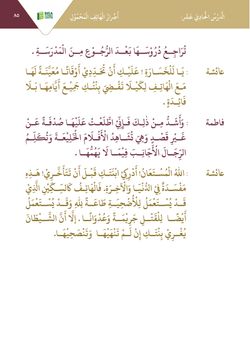 الدَّرْسُ الْحَادِيَ عَشَرَ
أَضْرَارُ الْهَاتِفِ الْمَحْمُولِ
٨٥
تُرَاجِعُ دُرُوسَهَا بَعْدَ الرُّجُوعِ مِنَ الْمَدْرَسَةِ .
عائشة : يَا لَلْخَسَارَةِ ! عَلَيْكِ أَنْ تُحَدِّدِيْ أَوْقَاتًا مُعَيَّنَةً لَهَا
مَعَ الْهَاتِفِ لِكَيْلَا تَقْضِيَ بِنْتُكِ جَمِيْعَ أَيَّامِهَا بِلَا
فَائِدَةٍ .
فاطمة : وَأَشَدُّ مِنْ ذَلِكَ فَإِنِّيْ اطَّلَعْتُ عَلَيْهَا صُدْفَةً عَنْ
غَيْرِ قَصْدٍ وَهِيَ تُشَاهِدُ الْأَفْلَامَ الْخَلِيْعَةَ وَتُكَلِّمُ
الرِّجَالَ الْأَجَانِبَ فِيْمَا لَا يَهُمُّهَا .
عائشة : اللهُ الْمُسْتَعَانُ! أَدْرِكِيْ ابْنَتَكِ قَبْلَ أَنْ تَتَأَخَّرِيْ! هَذِهِ
مَفْسَدَةٌ فِي الدُّنْيَا وَالْآخِرَةِ. فَالْهَاتِفُ كَالسِّكِّيْنِ الَّذِيْ
قَدْ يُسْتَعْمَلُ لِلْأُضْحِيَةِ طَاعَةً لِلهِ وَقَدْ يُسْتَعْمَلُ
أَيْضًا لِلْقَتْلِ جَرِيْمَةً وَعُدْوَانًا . إِلَّا أَنَّ الشَّيْطَانَ
يُغْرِيْ بِنْتَكِ إِنْ لَمْ تَنْهَيْهَا وَتَنْصَحِيْهَا.